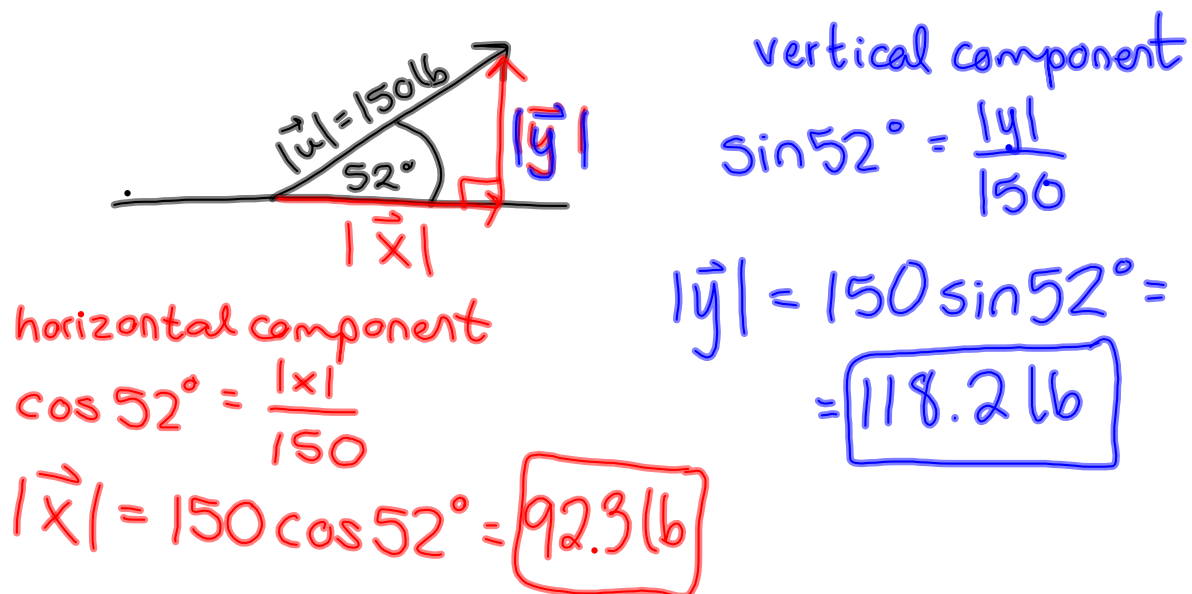 |u⃗| = 150lb
52°
|y⃗|
|x⃗|
horizontal component
cos 52° = |x| / 150
|x⃗| = 150 cos 52° = 92.3 lb
vertical component
sin 52° = |y| / 150
|y⃗| = 150 sin 52° =
= 118.2 lb